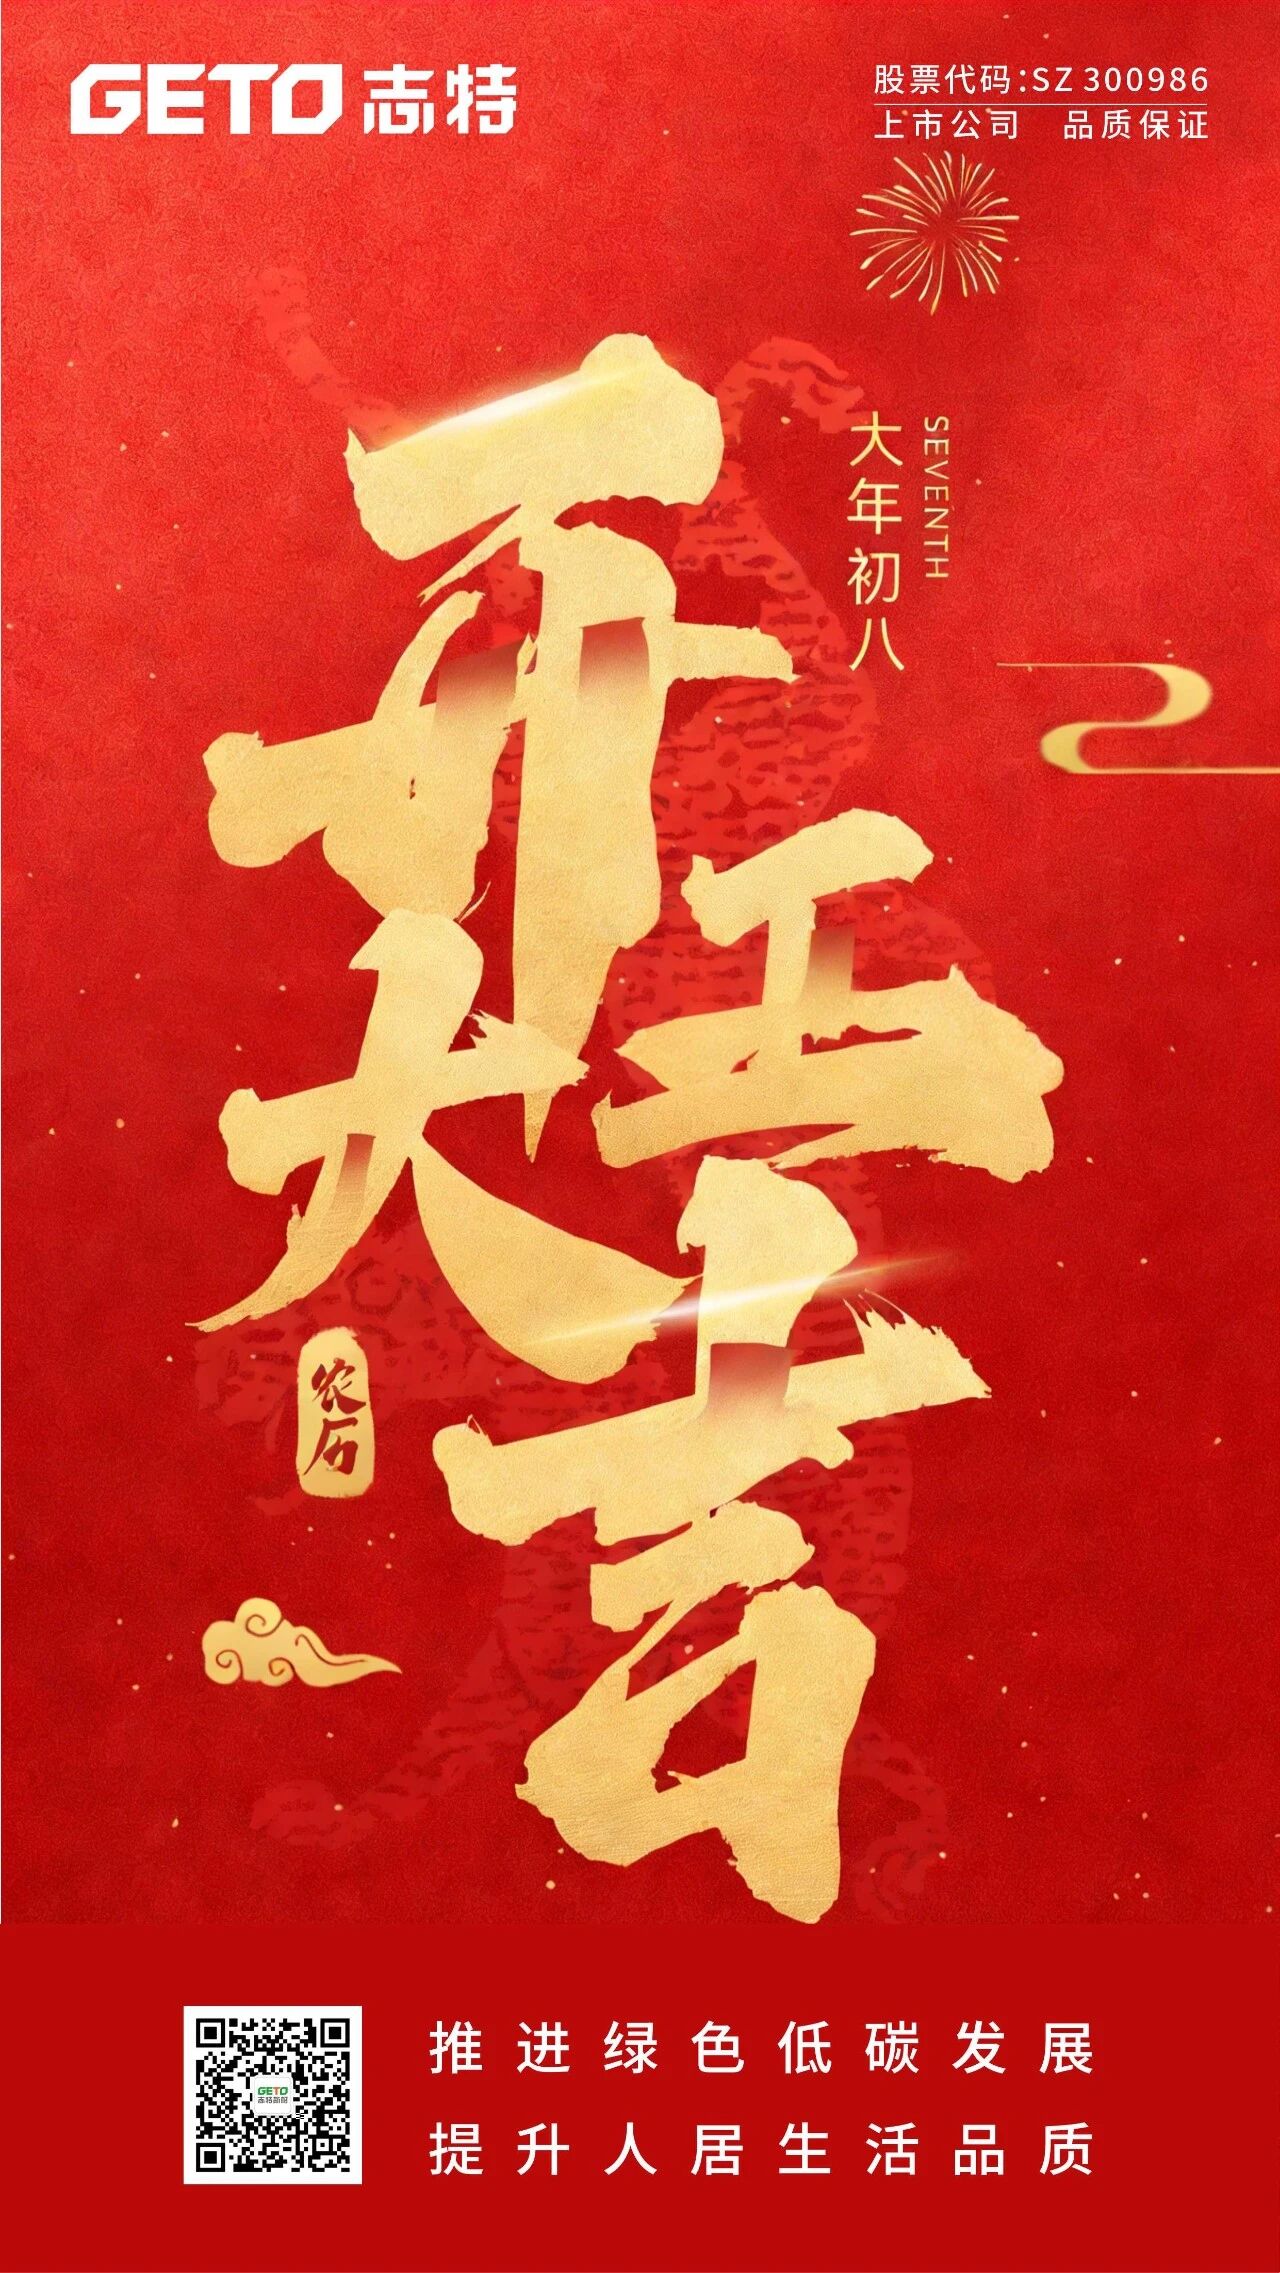 GETO 志特
股票代码:SZ 300986
上市公司 品质保证
大年初八
SEVENTH
开工大吉
农历
GETO
志特新材
推进绿色低碳发展
提升人居生活品质